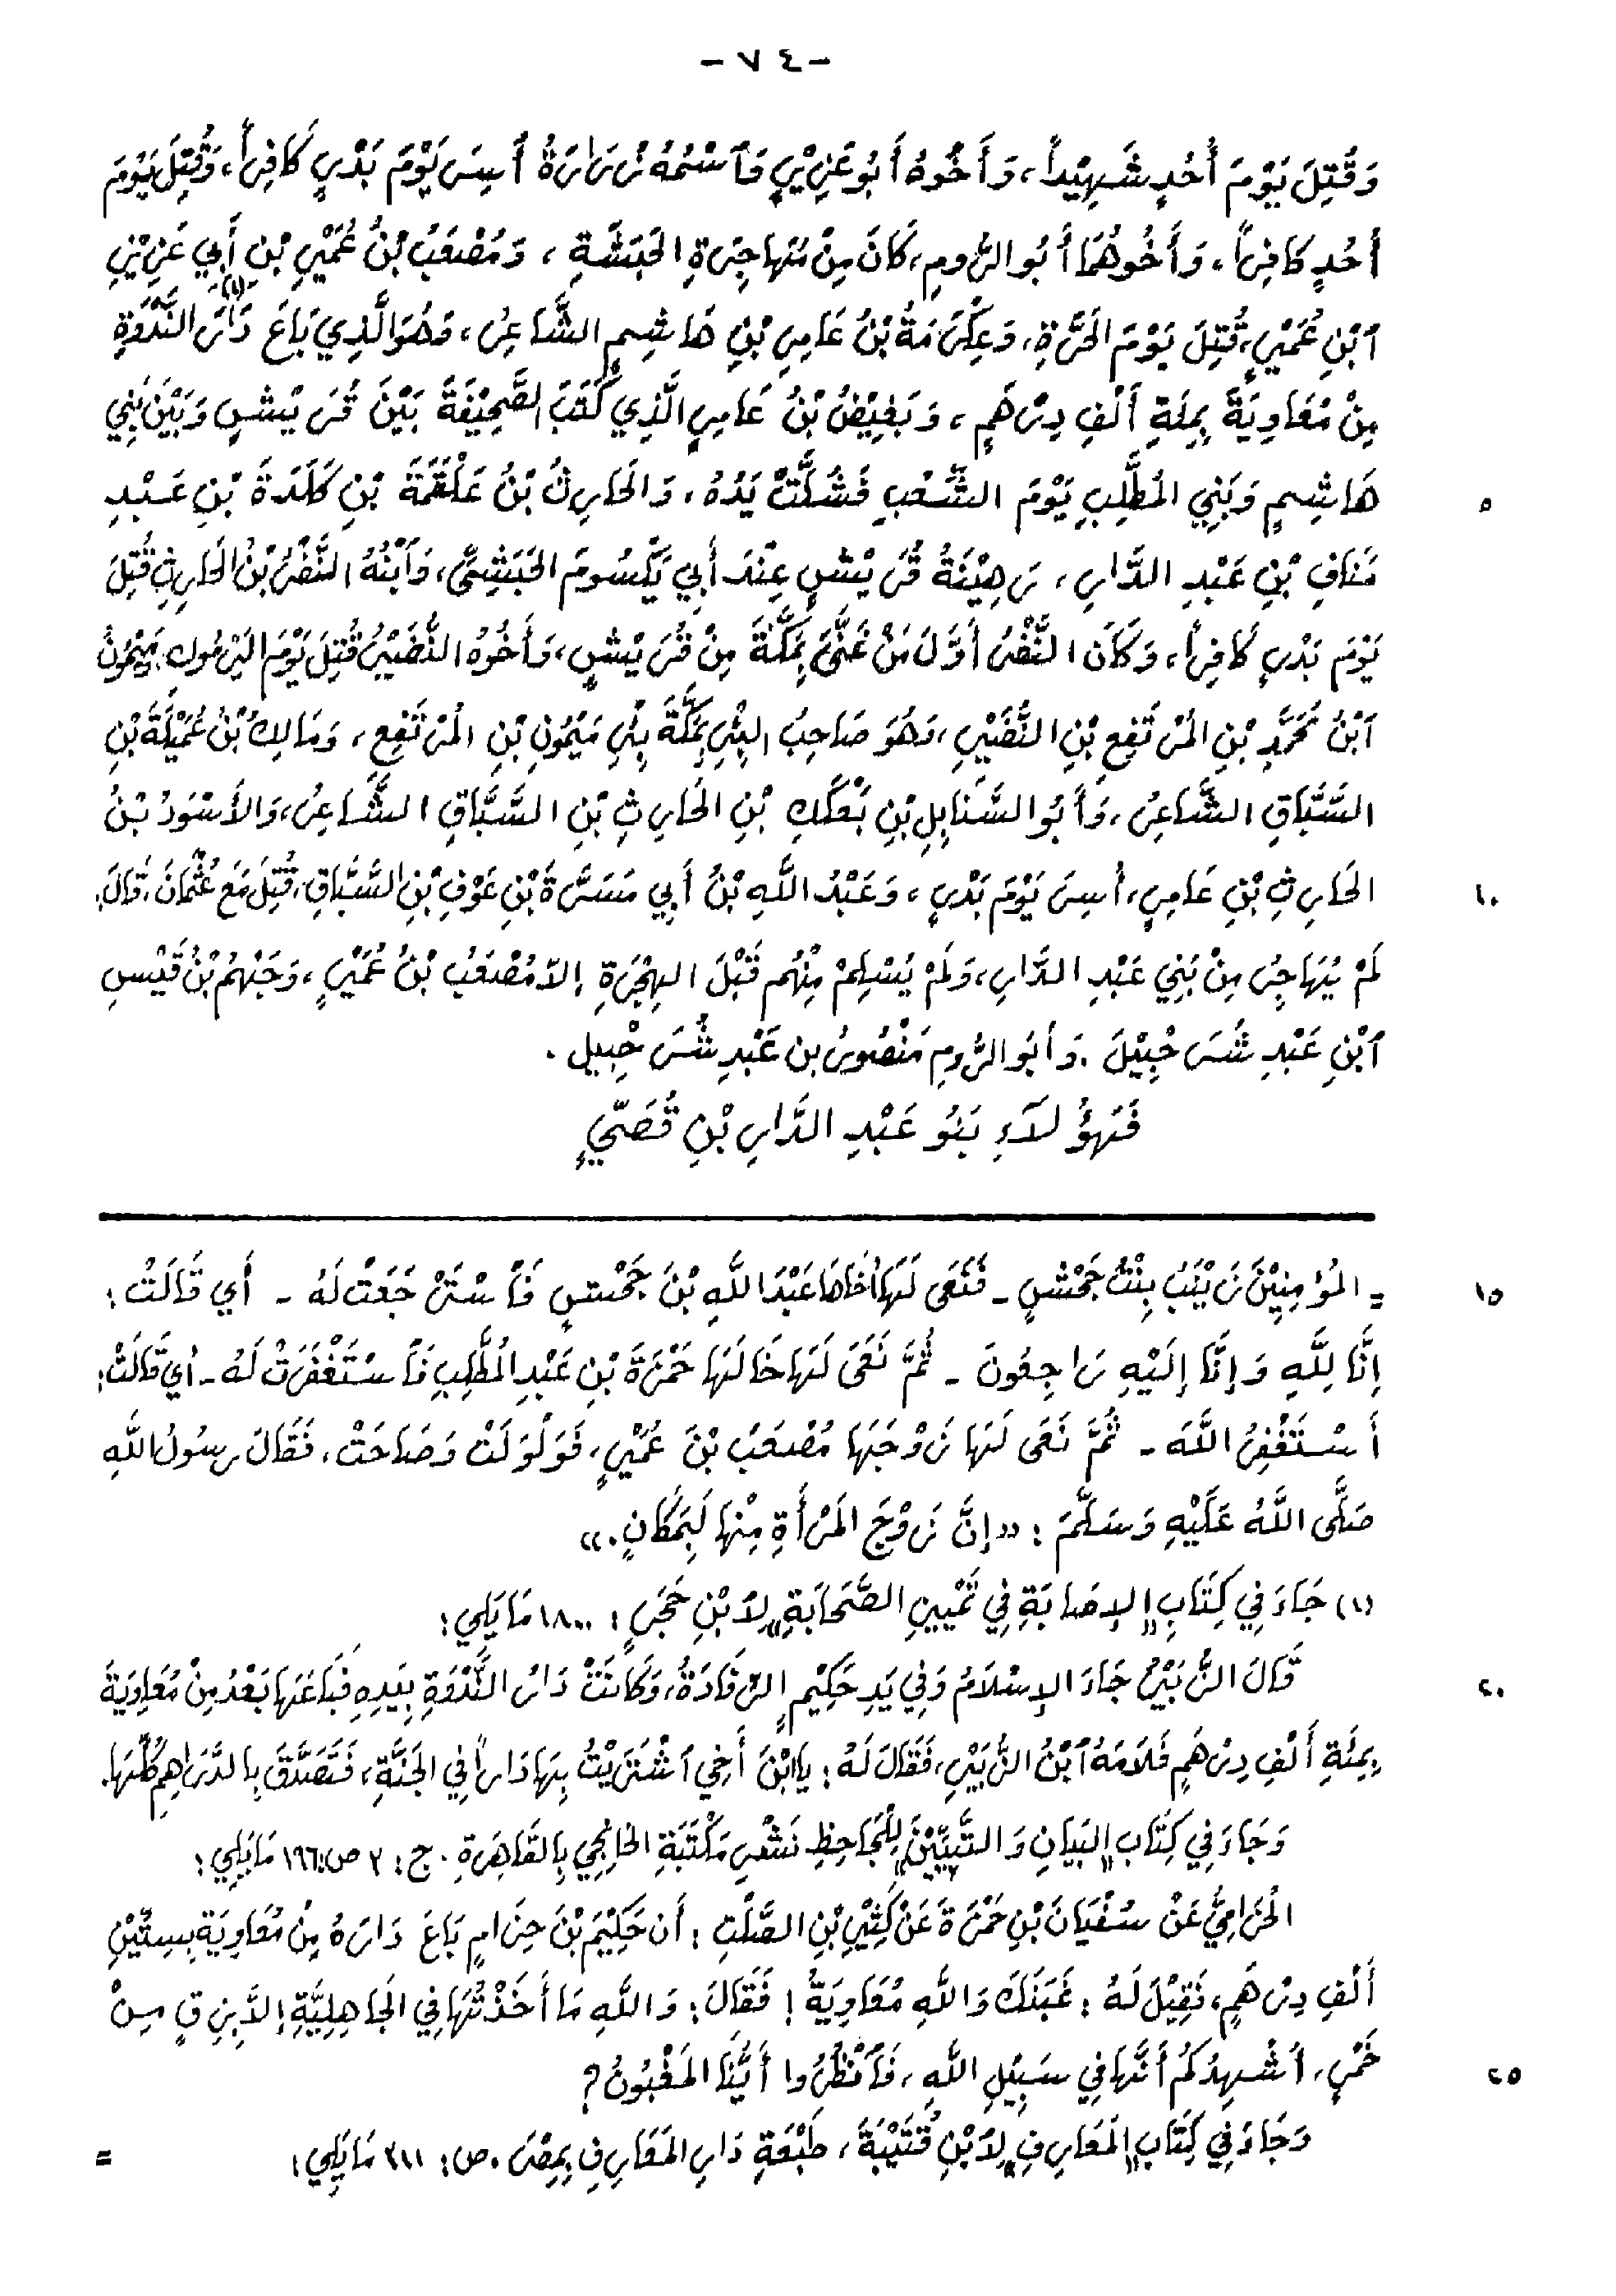 -٧٤-
وَقُتِلَ يَوْمَ أُحُدٍ شَهِيْداً، وَأَخُوهُ أَبُو عَزِيْزٍ وَٱسْمُهُ زُرَارَةُ أُسِرَ يَوْمَ بَدْرٍ كَافِراً، وَقُتِلَ يَوْمَ
أُحُدٍ كَافِراً، وَأَخُوهُمَا أَبُو الرُّومِ، كَانَ مِنْ مُهَاجِرَةِ الحَبَشَةِ، وَمُصْعَبُ بْنُ عُمَيْرِ بْنِ أَبِي عَزِيْزِ
ٱبْنِ عُمَيْرٍ، قُتِلَ يَوْمَ الحَرَّةِ، وَعِكْرَمَةُ بْنُ عَامِرِ بْنِ هَاشِمٍ الشَّاعِرُ، وَهُوَ الَّذِي بَاعَ دَارَ النَّدْوَةِ (١)
مِنْ مُعَاوِيَةَ بِمِئَةِ أَلْفِ دِرْهَمٍ، وَبَغِيْضُ بْنُ عَامِرٍ الَّذِي كَتَبَ الصَّحِيْفَةَ بَيْنَ قُرَيْشٍ وَبَيْنَ بَنِي
هَاشِمٍ وَبَنِي المُطَّلِبِ يَوْمَ الشِّعْبِ فَشُلَّتْ يَدُهُ، وَالحَارِثُ بْنُ عَلْقَمَةَ بْنِ كَلَدَةَ بْنِ عَبْدِ
٥
مَنَافِ بْنِ عَبْدِ الدَّارِ، رَهِيْنَةُ قُرَيْشٍ عِنْدَ أَبِي يَكْسُومَ الحَبَشِيِّ، وَٱبْنُهُ النَّضْرُ بْنُ الحَارِثِ قُتِلَ
يَوْمَ بَدْرٍ كَافِراً، وَكَانَ النَّضْرُ أَوَّلَ مَنْ غَنَّى بِمَكَّةَ مِنْ قُرَيْشٍ، وَأَخُوهُ النُّضَيْرُ قُتِلَ يَوْمَ اليَرْمُوكِ، وَمَيْمُونُ
ٱبْنُ مُحَمَّدِ بْنِ المُرْتَفِعِ بْنِ النُّضَيْرِ، وَهُوَ صَاحِبُ البِئْرِ بِمَكَّةَ بِئْرِ مَيْمُونِ بْنِ المُرْتَفِعِ، وَمَالِكُ بْنُ عُمَيْلَةَ بْنِ
السَّبَّاقِ الشَّاعِرُ، وَأَبُو السَّنَابِلِ بْنِ بَعْكَكِ بْنِ الحَارِثِ بْنِ السَّبَّاقِ الشَّاعِرُ، وَالأَسْوَدُ بْنُ
الحَارِثِ بْنِ عَامِرٍ، أُسِرَ يَوْمَ بَدْرٍ، وَعَبْدُ اللَّهِ بْنُ أَبِي مَسَرَّةَ بْنِ عَوْفِ بْنِ السَّبَّاقِ، قُتِلَ مَعَ عُثْمَانَ، قَالَ:
١٠
لَمْ يُهَاجِرْ مِنْ بَنِي عَبْدِ الدَّارِ، وَلَمْ يُسْلِمْ مِنْهُم قَبْلَ الهِجْرَةِ إلاّ مُصْعَبُ بْنُ عُمَيْرٍ، وَجَهْمُ بْنُ قَيْسِ
ٱبْنِ عَبْدِ شُرَحْبِيْلَ، وَأَبُو الرُّومِ مَنْصُورُ بن عَبْدِ شُرَحْبِيل.
فَهَؤُلاَءِ بَنُو عَبْدِ الدَّارِ بْنِ قُصَيٍّ
= المُؤمِنِيْنَ زَيْنَبُ بِنْتُ جَحْشٍ - فَنَعَى لَهَا أَخَاهَا عَبْدَ اللَّهِ بْنَ جَحْشٍ فَٱسْتَرْجَعَتْ لَهُ - أَي قَالَتْ:
١٥
إِنَّا لِلَّهِ وَإِنَّا إِلَيْهِ رَاجِعُونَ - ثُمَّ نَعَى لَهَا خَالَهَا حَمْزَةَ بْنِ عَبْدِ المُطَّلِبِ فَٱسْتَغْفَرَتْ لَهُ - أي قَالَتْ:
أَسْتَغْفِرُ اللَّهَ - ثُمَّ نَعَى لَهَا زَوْجَهَا مُصْعَبَ بْنَ عُمَيْرٍ، فَوَلْوَلَتْ وَصَاحَتْ، فَقَالَ رسُولُ اللَّهِ
صَلَّى اللَّهُ عَلَيْهِ وَسَلَّمَ: «إنَّ زَوْجَ المَرْأَةِ مِنْهَا لَبِمَكَانٍ.»
(١) جَاءَ فِي كِتَابِ "الإصَابَةِ فِي تَمْيِيزِ الصَّحَابَةِ" لِابْنِ حَجَرٍ: ١٨٠٠ مَا يَلِي:
قَالَ الزُّبَيْرُ جَاءَ الإسْلاَمُ وَفِي يَدِ حَكِيْمٍ الرِّفَادَةُ، وَكَانَتْ دَارُ النَّدْوَةِ بِيَدِهِ فَبَاعَهَا بَعْدُ مِنْ مُعَاوِيَةَ
٢٠
بِمِئَةِ أَلْفِ دِرْهَمٍ فَلاَمَهُ ٱبْنُ الزُّبَيْرِ، فَقَالَ لَهُ: يَا ابْنَ أَخِي ٱشْتَرَيْتُ بِهَا دَاراً فِي الجَنَّةِ، فَتَصَدَّقَ بِالدَّرَاهِمِ كُلِّهَا.
وَجَاءَ فِي كِتَاب "البَيَانِ وَالتَّبْيِيْنَ" لِلْجَاحِظِ نَشْرِ مَكْتَبَةِ الخَانْجِي بِالقَاهِرَةِ. ج: ٣ ص: ١٩٦ مَا يَلِي:
الحِزَامِيُّ عَنْ سُفْيَانَ بْنِ حَمْزَةَ عَنْ كَثِيْرِ بْنِ الصَّلْتِ: أَن حَكِيْمَ بْنَ حِزَامٍ بَاعَ دَارَهُ مِنْ مُعَاوِيَةَ بِسِتِّيْنِ
أَلْفِ دِرْهَمٍ، فَقِيْلَ لَهُ: غَبَنَكَ وَاللَّهِ مُعَاوِيَةُ! فَقَالَ: وَاللَّهِ مَا أَخَذْتُهَا فِي الجَاهِلِيَّةِ إلاَّ بِزِقٍ مِنْ
خَمْرٍ، أُشْهِدُكُمْ أَنَّهَا فِي سَبِيْلِ اللَّهِ، فَٱنْظُرُوا أَيُّنَا المَغْبُونُ؟
٢٥
وَجَاءَ فِي كِتَابِ "المَعَارِفِ" لِابْنِ قُتَيْبَةَ، طَبْعَةِ دَارِ المَعَارِفِ بِمِصْرَ. ص: ٣١١ مَا يَلِي: =